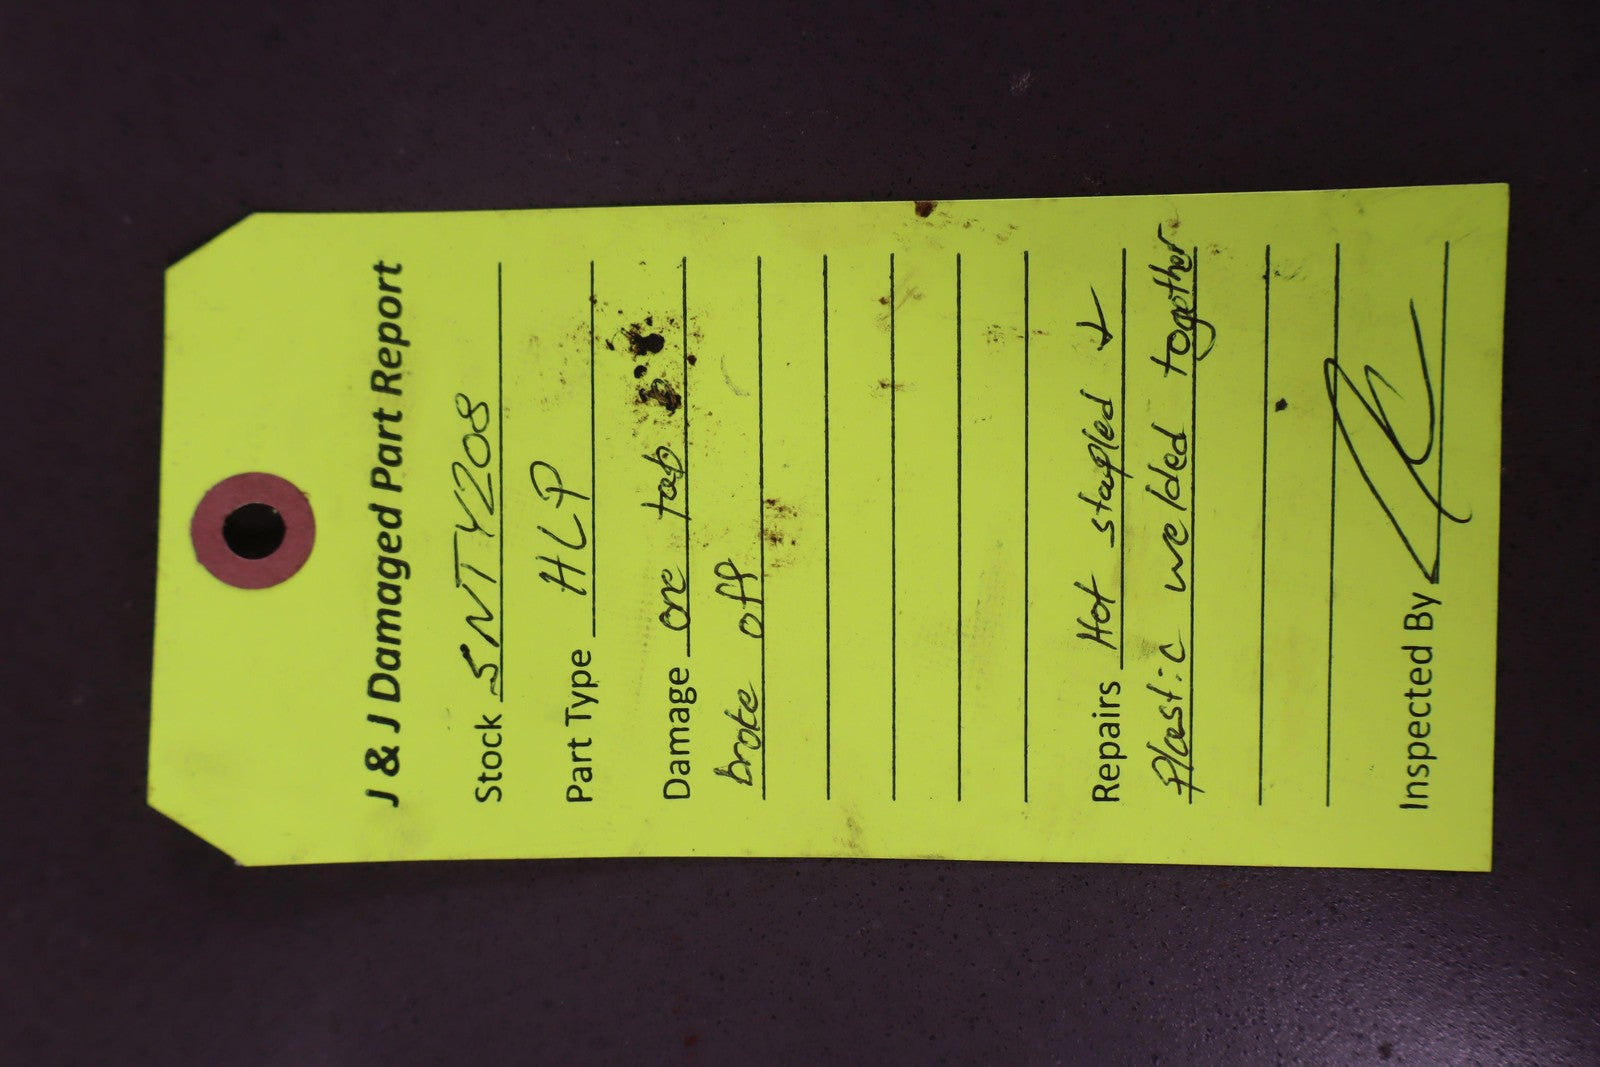 J & J Damaged Part Report
Stock SNTY208
Part Type HLP
Damage one tab
broke off
Repairs Hot stapled &
Plastic welded together
Inspected By